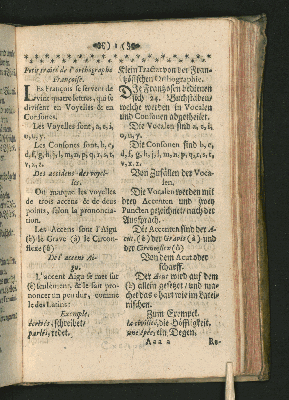 1
Petit traité de l'orthographe
Françoise.
LEs François se servent de
vint quatre lettres, qui se
divisent en Voyelles & en
Consones.
Les Voyelles sont, a, e, i,
o, u, y.
Les Consones sont, b, c,
d, f, g, h, j, l, m, n, p, q, r, s, t,
v, x, z.
Des accidens des voyel-
les.
On marque les voyelles
de trois accens & de deux
points, selon la prononcia-
tion.
Les Accens sont l'Aigu
(é) le Grave (à) le Circon-
flexe (ê)
Des accens Ai-
gu.
L'accent Aigu se met sur
(é) seulement, & le fait pro-
noncer un peu dur, comme
le des Latins:
Exemple,
écrivés, schreibet,
parlés, redet.
Klein Tractat von der Fran-
tzösischen Orthographie.
DIe Frantzosen bedienen
sich 24. Buchstaben,
welche werden in Vocalen
und Consonen abgetheilet.
Die Vocalen sind a, e, i,
o, u, y.
Die Consonen sind b, c,
d, f, g, h, j, l, m, n, p, q, r, s, t,
v, x, z.
Von Zufällen der Voca-
len.
Die Vocalen werden mit
drey Accenten und zwey
Puncten gezeichnet/nach der
Aussprach.
Die Accenten sind der A-
cut, (é) der Gravis (à) und
der Circonflex (ê)
Von dem Acut oder
scharff.
Der Acut wird auf dem
(é) allein gesetzet / und ma-
chet das e hart wie im Latei-
nischen.
Zum Exempel.
la civilité, die Höfligkeit,
une épée, ein Degen.
Aaa 2 Re-